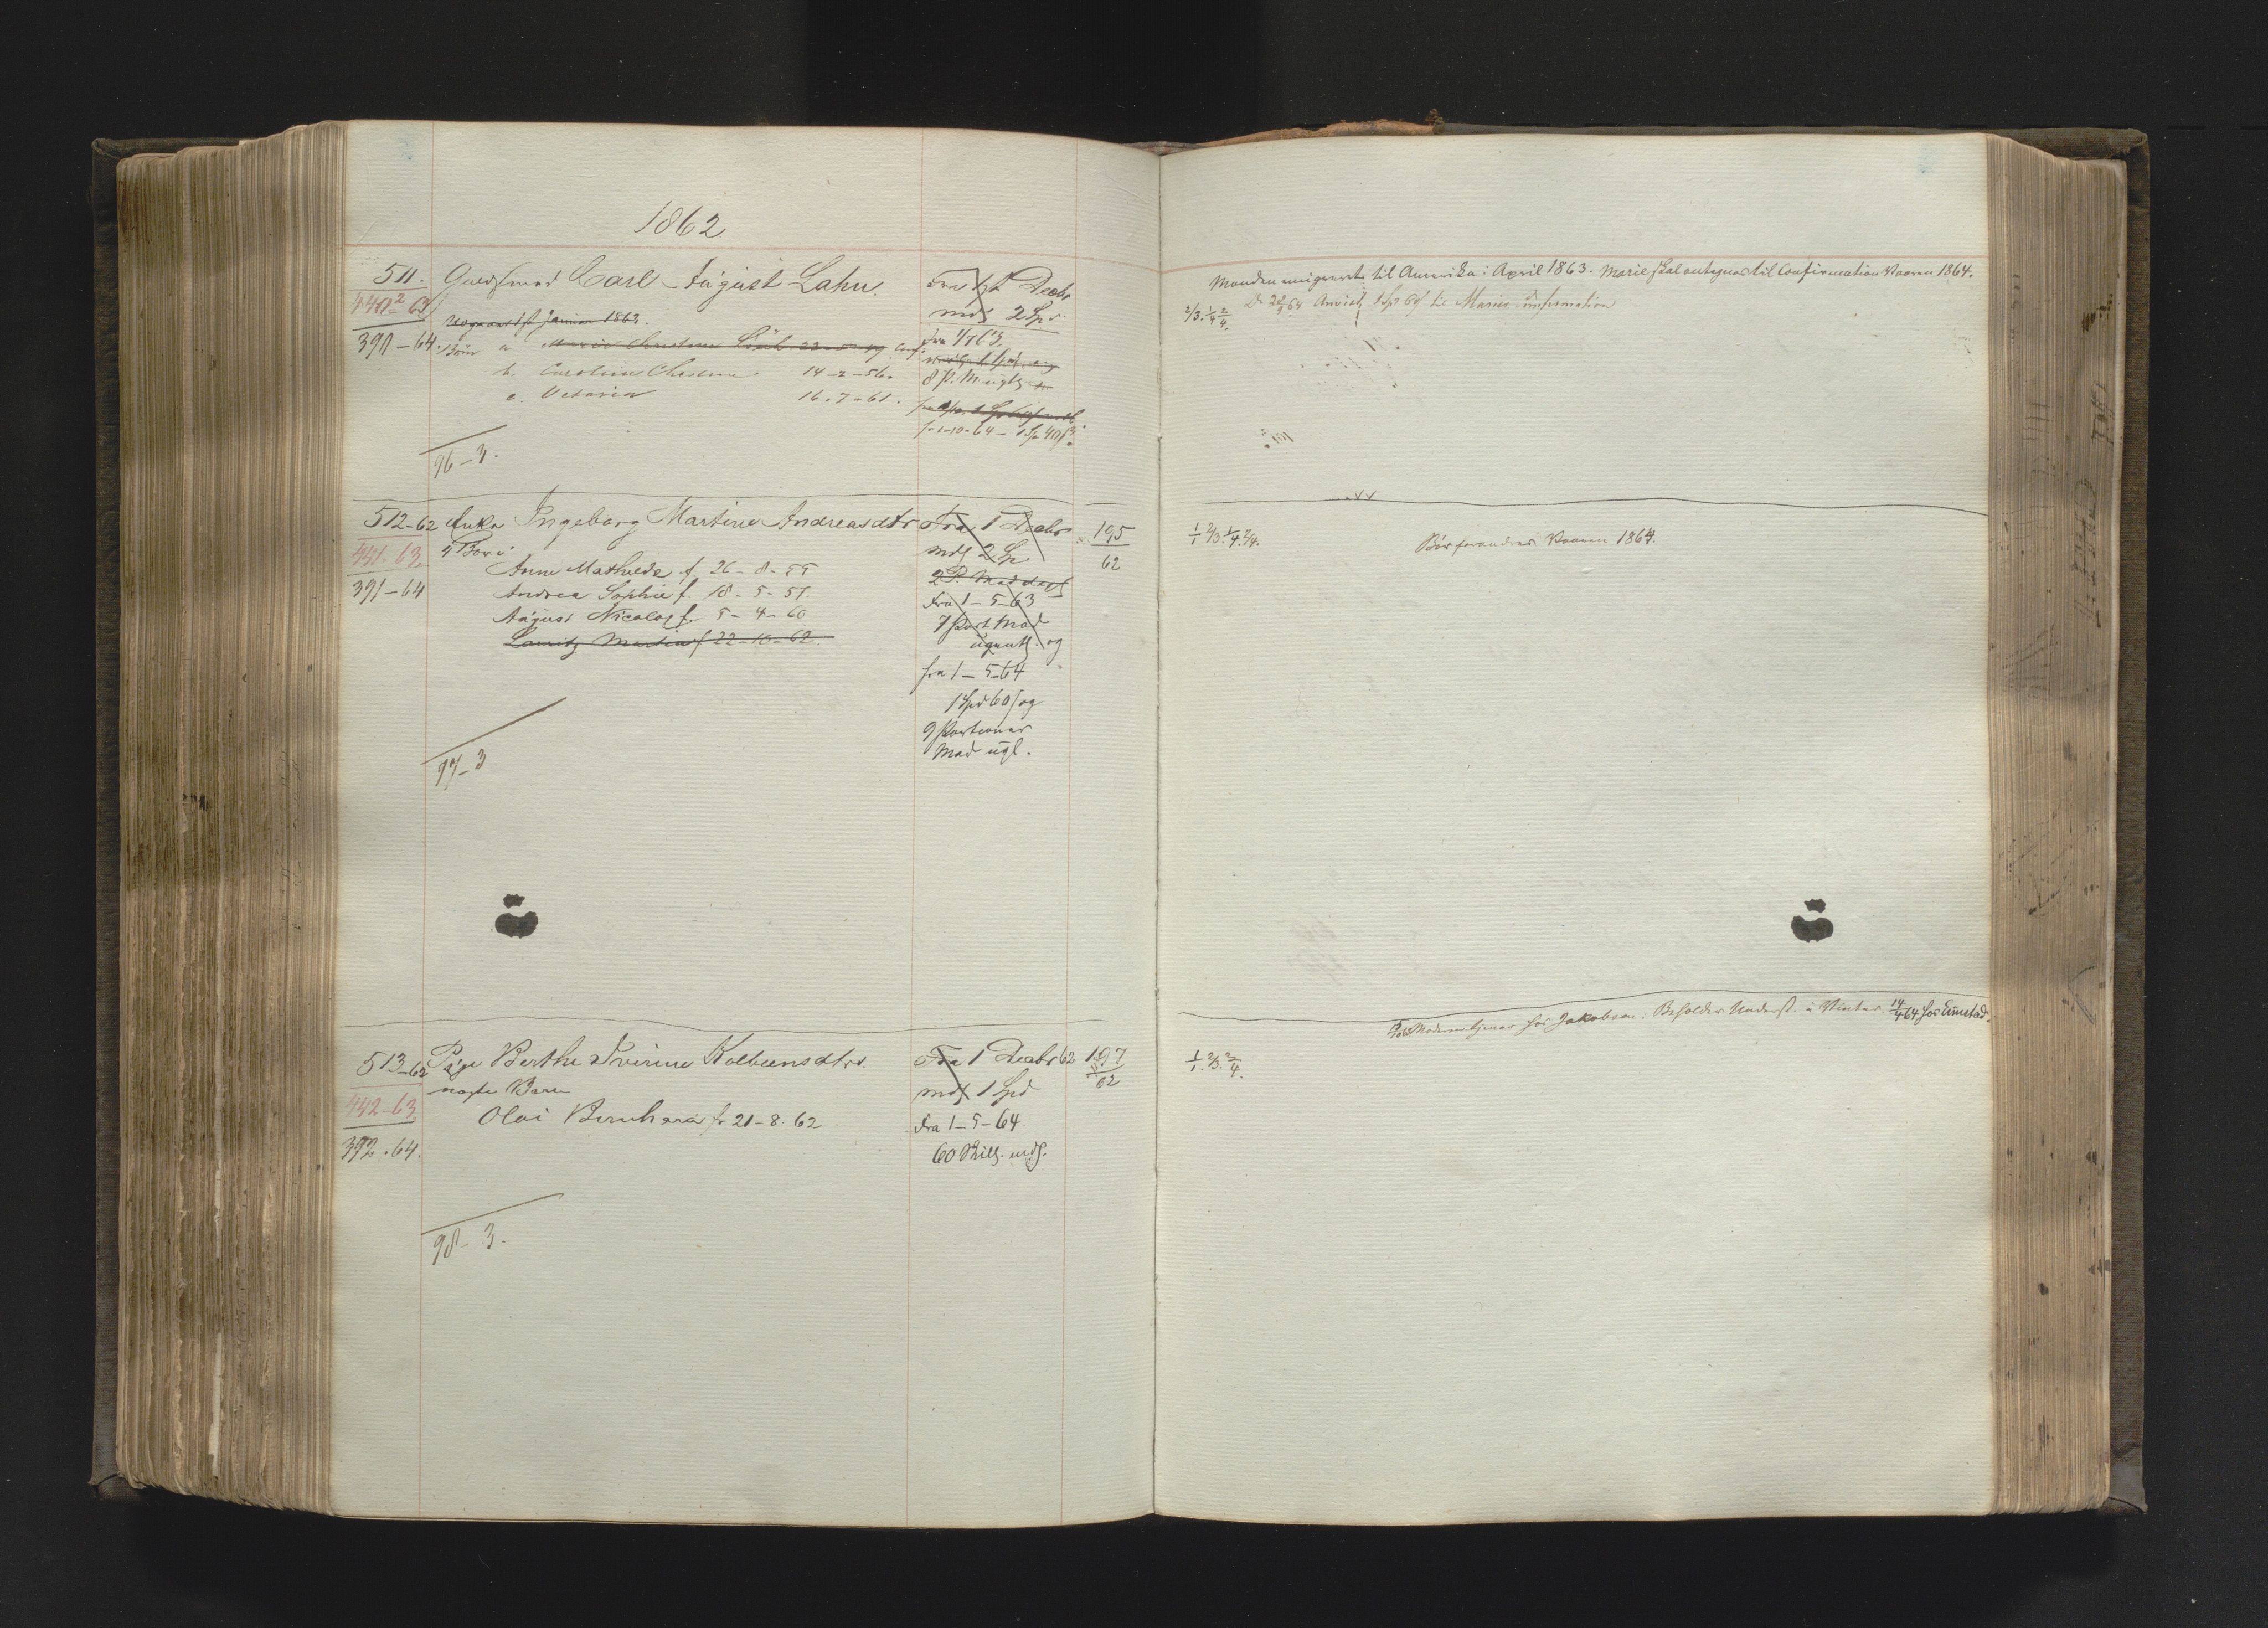 1862
511. Guldsmed Carl August Lahn.
440² 63
Januar 1863.
390-64. Børn a Christine 22
b. Caroline 14-2-56.
c. Victoria 16-7-61.
96-3.
Decbr
mdl 2 Spd.
Fra 1/1 63
8 P. M. ugtl
fr 1-10-64 - 1 Sp 40 s
512-62 Enke Ingeborg Martine Andreasdtr
441-63. 4 Børn:
391-64
Anne Mathilde f. 26-8-55
Andrea Sophie f. 18-5-57.
August Nicolai f. 5-4-60
Lauritz Martin f 22-10-62.
97-3
Fra 1 Decbr
mdl 2 Sp
2 P. Mad dagl
Fra 1-5-63
7 Port Mad
ugentl. og
fra 1-5-64
1 Spd 60 s og
9 Portioner
Mad ugl.
195
62
513-62 Pige Berthe Severine Kolbeensdtr.
442-63 uægte Barn
Olai Bernhard f. 21-8-62
392-64.
98-3.
Fra 1 Decbr 62
mdl 1 Spd
Fra 1-5-64
60 Skill. mdl.
197
62
Manden emigrerte til Amerika i April 1863. Marie skal antegnes til Confirmation Vaaren 1864.
2/3. 1/4 2/4.
1 Spd 60 s til Maries Confirmation
1/1 2/3. 1/4. 2/4.
Bør forandres Vaaren 1864.
Moderen tjener hos Jakobsen: Beholder Underst. i Vinter. 14/4 64 hos Eimstad.
1/1. 2/3. 2/4.